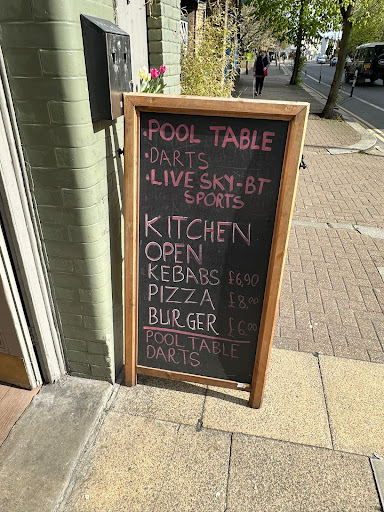 ·POOL TABLE
·DARTS
·LIVE SKY-BT
SPORTS
KITCHEN
OPEN
KEBABS £6.90
PIZZA £8.00
BURGER £6.00
POOL TABLE
DARTS